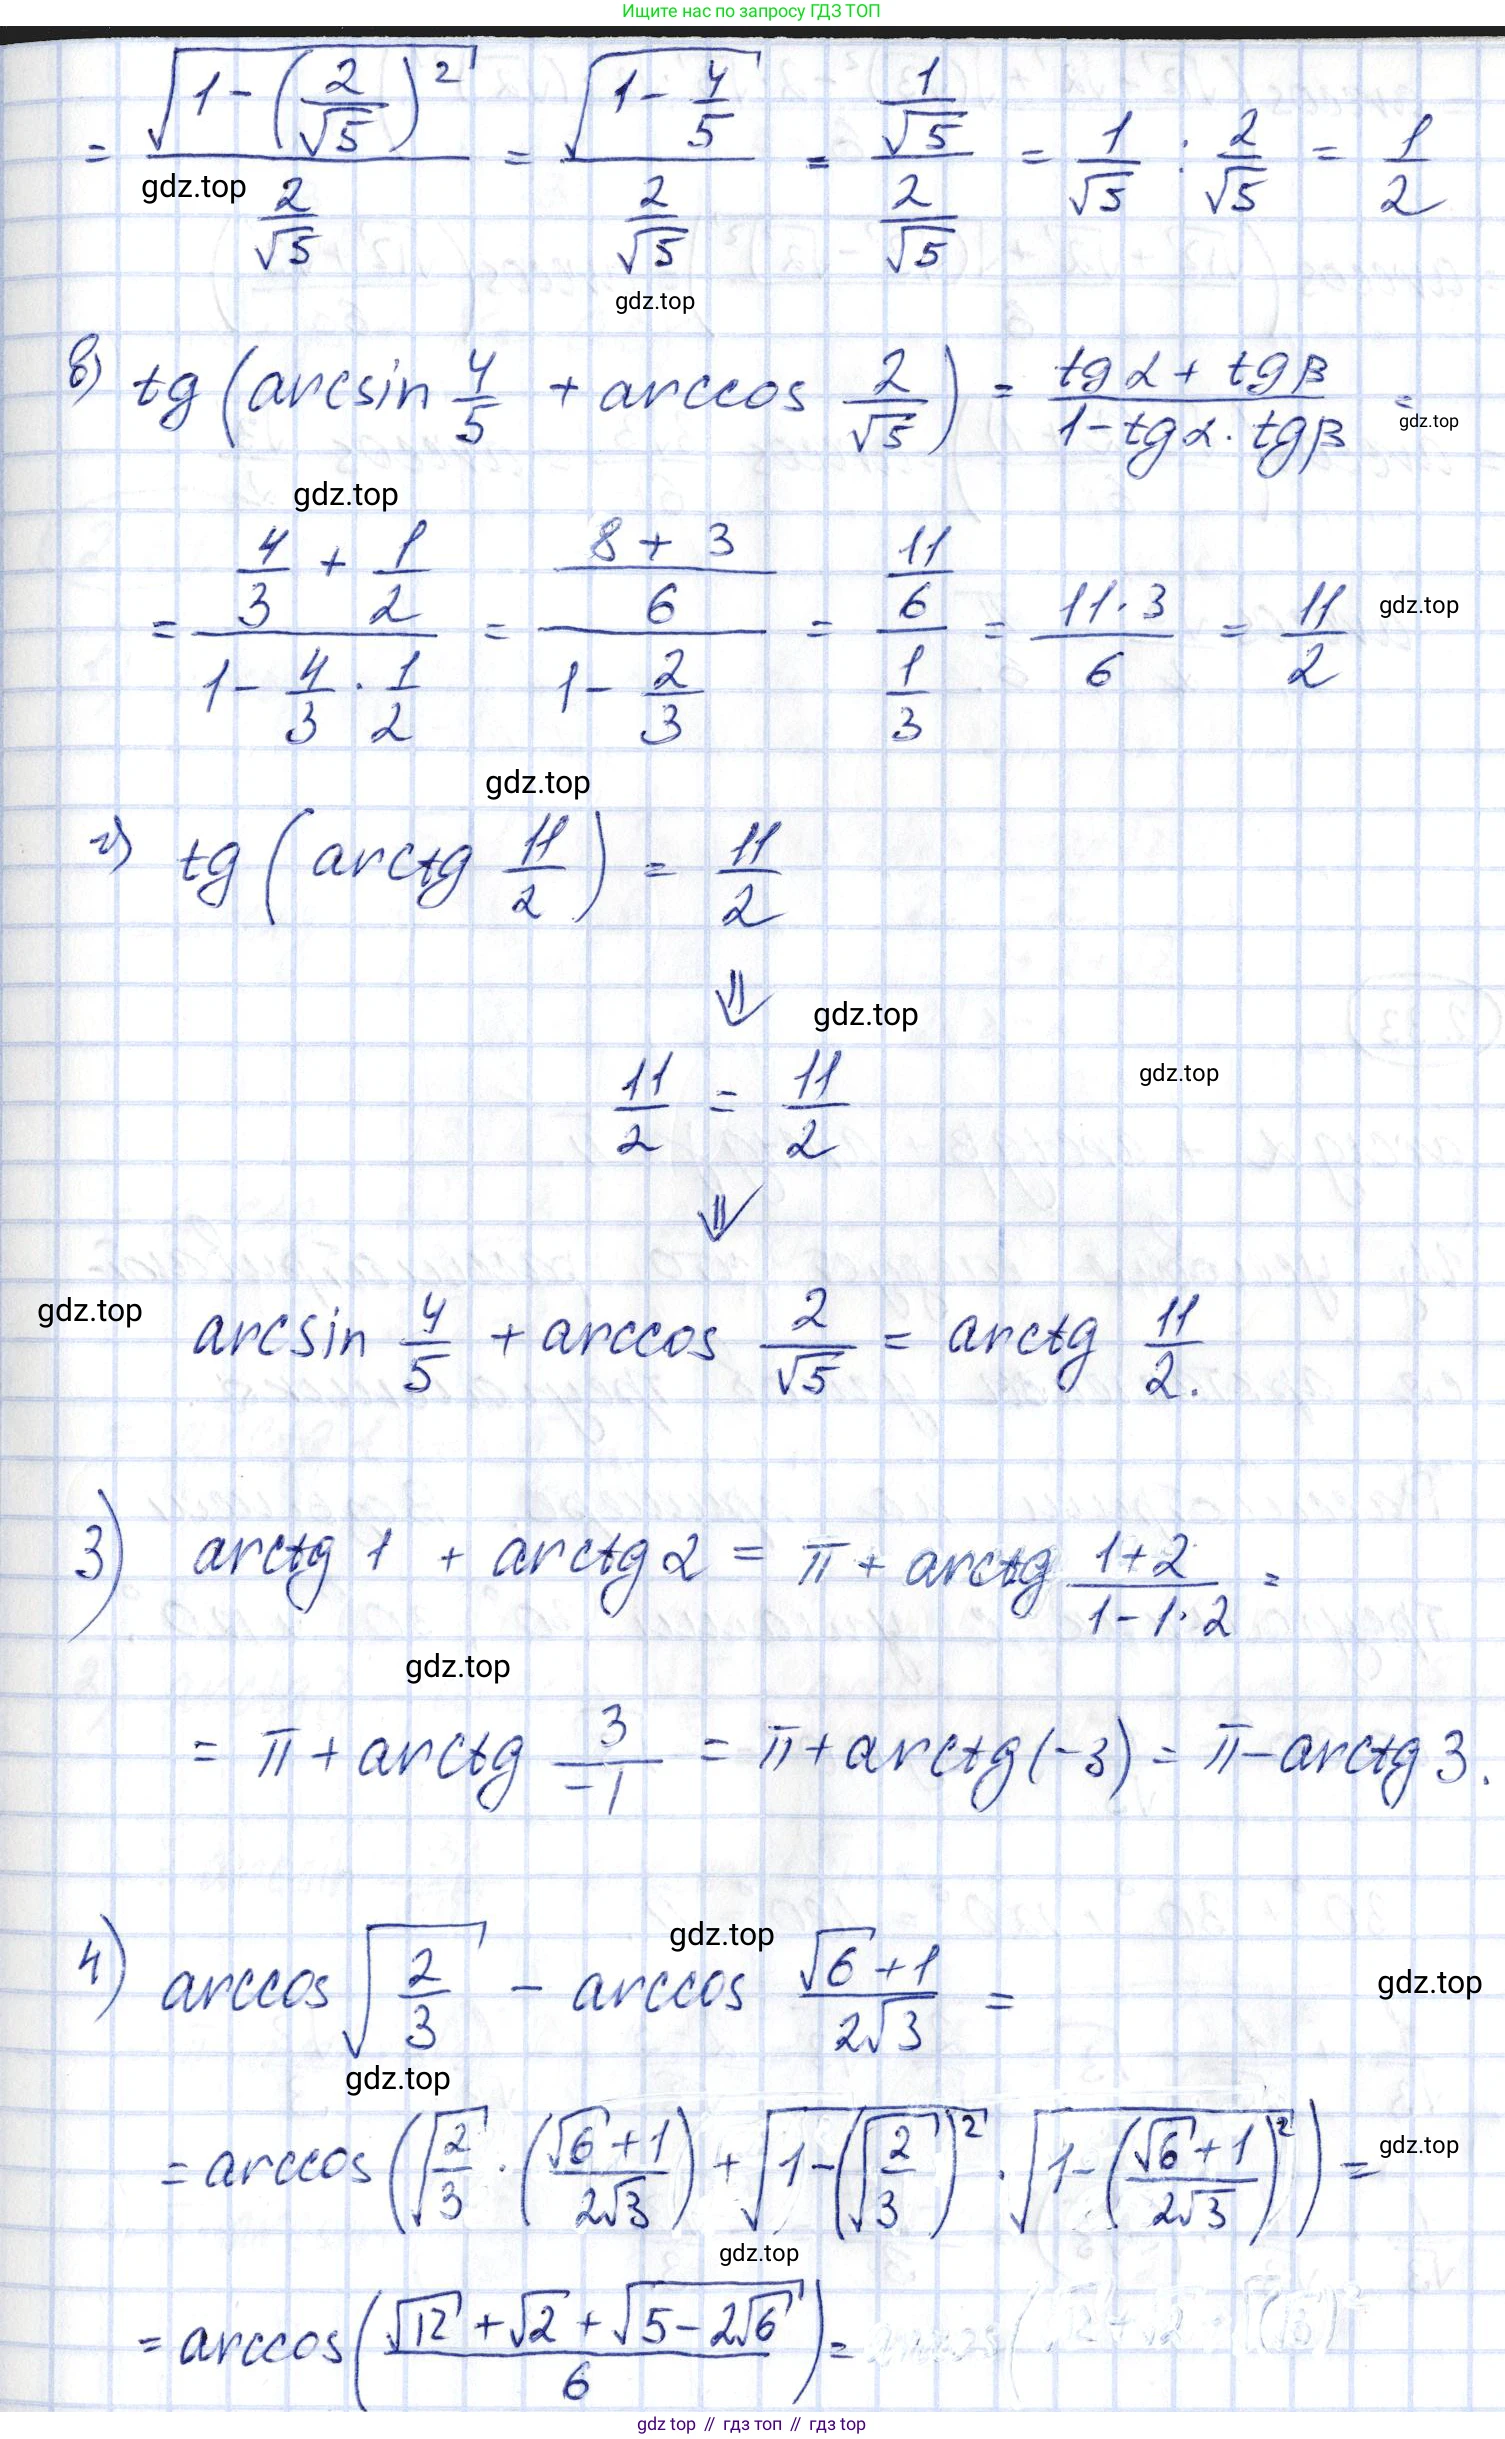 Ищите нас по запросу ГДЗ ТОП
= √(1 - (2/√5)²) / (2/√5) = √(1 - 4/5) / (2/√5) = (1/√5) / (2/√5) = 1/√5 : 2/√5 = 1/2
gdz.top
gdz.top
в) tg(arcsin 4/5 + arccos 2/√5) = (tgα + tgβ) / (1 - tgα · tgβ) =
gdz.top
gdz.top
= (4/3 + 1/2) / (1 - 4/3 · 1/2) = ((8 + 3)/6) / (1 - 2/3) = (11/6) / (1/3) = (11 · 3)/6 = 11/2
gdz.top
gdz.top
г) tg(arctg 11/2) = 11/2
⇓
gdz.top
11/2 = 11/2
gdz.top
⇓
gdz.top
arcsin 4/5 + arccos 2/√5 = arctg 11/2.
3) arctg 1 + arctg 2 = π + arctg (1+2)/(1-1·2) =
gdz.top
= π + arctg 3/(-1) = π + arctg(-3) = π - arctg 3.
gdz.top
4) arccos √(2/3) - arccos (√6+1)/(2√3) =
gdz.top
gdz.top
= arccos(√(2/3) · ((√6+1)/(2√3)) + √(1-(√(2/3))²) · √(1-((√6+1)/(2√3))²)) =
gdz.top
gdz.top
= arccos((√12 + √2 + √(5-2√6))/6) =
gdz top // гдз топ // гдз top